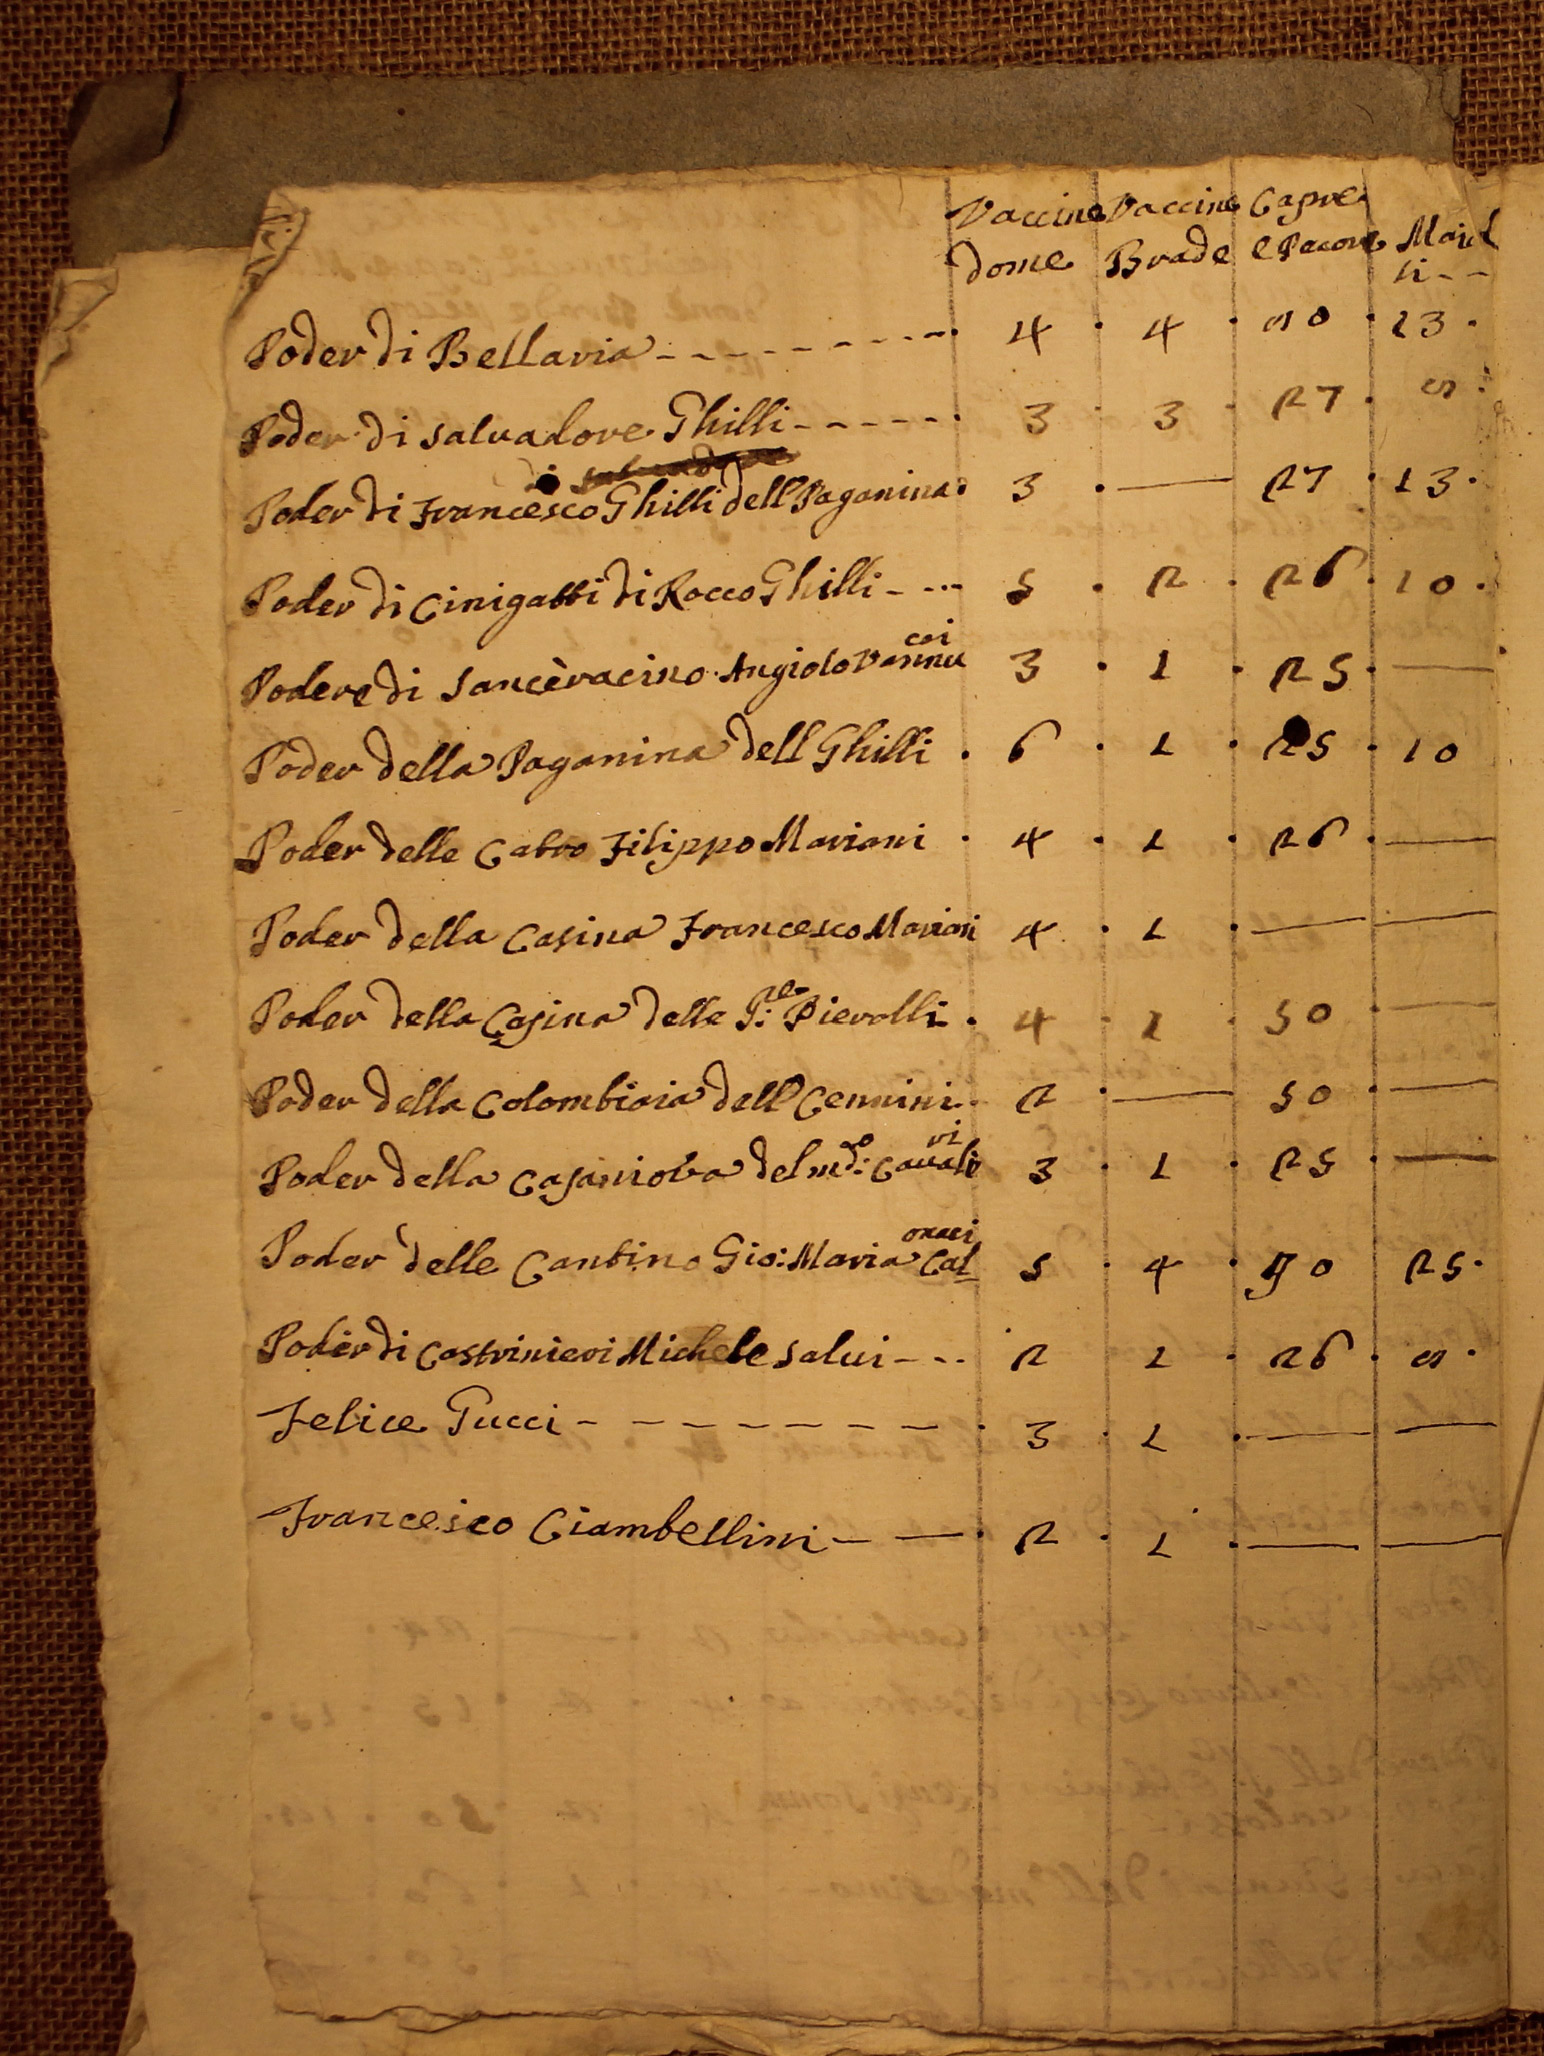 Vaccine Vaccine Capre
Dome Brade e Pecore Maia
li - -
Poder di Bellaria - - - - - - - - - 4 · 4 · 90 · 13 ·
Poder di Salvadore Ghilli - - - - - · 3 · 3 · 27 · 9 ·
Poder di Francesco Ghilli dell Paganina · 3 · — 27 · 13 ·
Poder di Cinigatti di Rocco Ghilli - - - - 5 · 2 · 26 · 10 ·
cci
Podere di Sancèracino Angiolo Vannu 3 · 1 · 25 · —
Poder della Paganina dell Ghilli · 6 · 1 · 25 · 10
Poder delle Catro Filippo Mariani · 4 · 1 · 26 · —
Poder della Casina Francesco Mariani 4 · 1 · — —
Poder della Casina delle Pierolli · 4 · 1 · 50 · —
Poder della Colombiaia dell Cennini · 2 · — 50 · —
ri
Poder della Casaniova del md:o Cavali 3 · 1 · 25 · —
onaci
Poder delle Cantine Gio: Maria Cal= 5 · 4 · 90 25 ·
Poder di Costrinieri Michele Salvi - - - 2 1 · 26 · 9 ·
Felice Pucci - - - - - - - - · 3 · 1 · — —
Francesco Ciambellini - — · 2 · 1 · — —